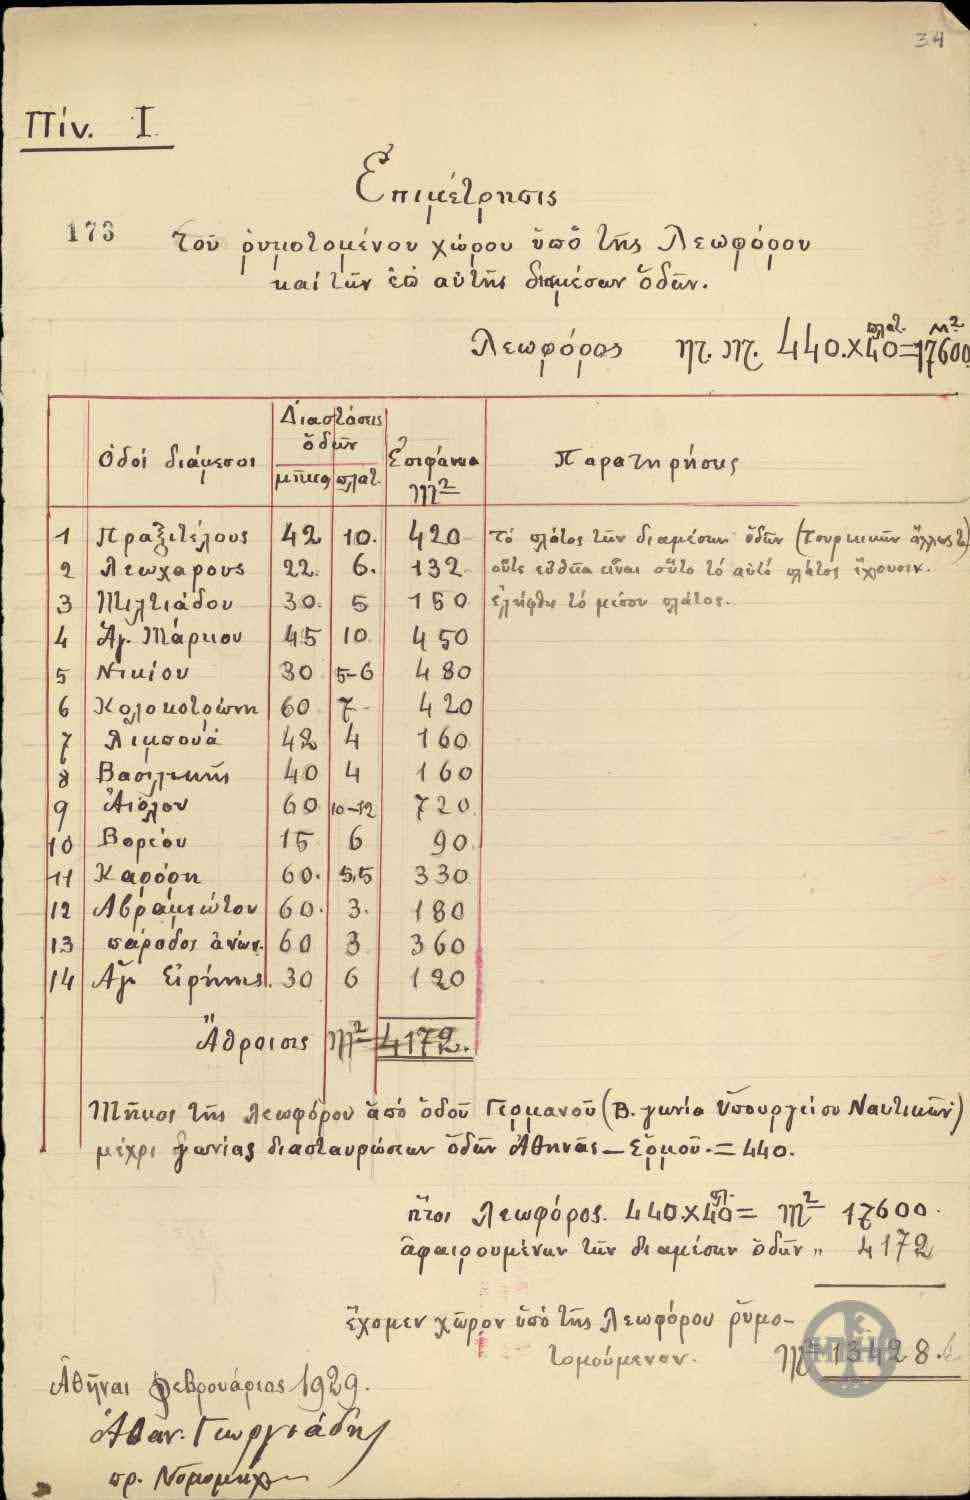 34
Πίν. I
Ἐπιμέτρησις
173
τοῦ ῥυμοτομένου χώρου ὑπὸ τῆς Λεωφόρου
καὶ τῶν ἐπ' αὐτῆς διαμέσων ὁδῶν.
Λεωφόρος μ. μ. 440 × 40 πλατ. = 17600 Μ²
Ὁδοί διάμεσοι Διαστάσεις ὁδῶν Ἐπιφάνεια Μ² Παρατηρήσεις
μῆκος πλατ.
1 Πραξιτέλους 42 10. 420 Τὸ πλάτος τῶν διαμέσων ὁδῶν (Τουρκικῶν ἄλλως τε)
2 Λεωχάρους 22. 6. 132 οὔτε εὐθεῖα εἶναι οὔτε τὸ αὐτὸ πλάτος ἔχουσιν.
3 Μιλτιάδου 30. 5 150 ἐλήφθη τὸ μέσον πλάτος.
4 Ἁγ. Μάρκου 45 10 450
5 Νικίου 30 5-6 480
6 Κολοκοτρώνη 60 7- 420
7 Λιμπονά 42 4 160
8 Βασιλικῆς 40 4 160
9 Αἰόλου 60 10-12 720
10 Βορέου 15 6 90
11 Καρόρη 60. 5,5 330
12 Αβραμιώτου 60. 3. 180
13 πάροδος ἀνών. 60 3 360
14 Ἁγ. Εἰρήνης. 30 6 120
Ἄθροισις Μ² 4172.
Μῆκος τῆς λεωφόρου ἀπὸ ὁδοῦ Γερμανοῦ (Β. γωνία Ὑπουργείου Ναυτικῶν)
μέχρι γωνίας διασταυρώσεων ὁδῶν Ἀθηνᾶς – Ἑρμοῦ. = 440.
ἤτοι Λεωφόρος. 440. × 40 πλ. = Μ² 17600.
ἀφαιρουμένων τῶν διαμέσων ὁδῶν „ 4172
ἔχομεν χῶρον ὑπὸ τῆς Λεωφόρου ῥυμο-
τομούμενον. Μ² 13428.
Ἀθῆναι Φεβρουάριος 1929.
Ἀθαν. Γεωργιάδης
πρ. Νομομηχ